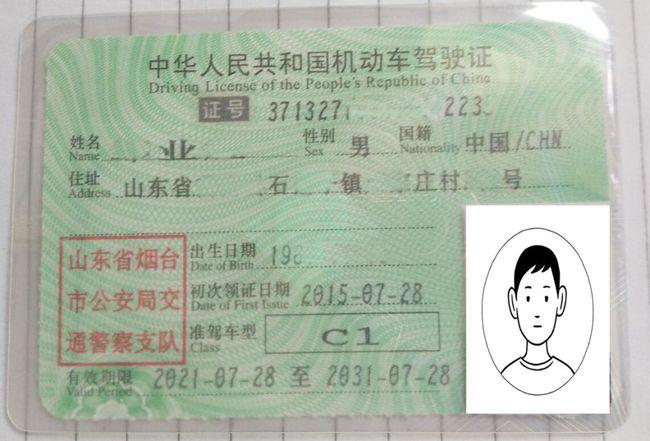 中华人民共和国机动车驾驶证
Driving License of the People's Republic of China
证号 371327 223
姓名 业 性别 男 国籍 中国/CHN
Name Sex Nationality
住址 山东省 石 镇 庄村 号
Address
山东省烟台
市公安局交
通警察支队
出生日期 198
Date of Birth
初次领证日期 2015-07-28
Date of First Issue
准驾车型 C1
Class
有效期限 2021-07-28 至 2031-07-28
Valid Period